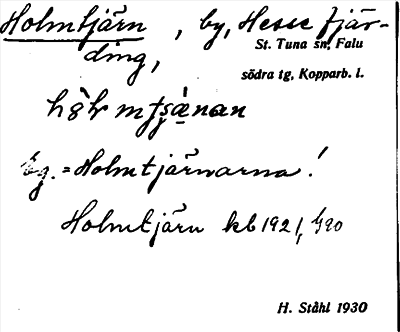 Holmtjärn, by, Hesse fjär-
ding,
St. Tuna sn, Falu
södra tg, Kopparb. l.
Eg. = Holmtjärnarna!
Holmtjärn kb 1921, G90
H. Ståhl 1930